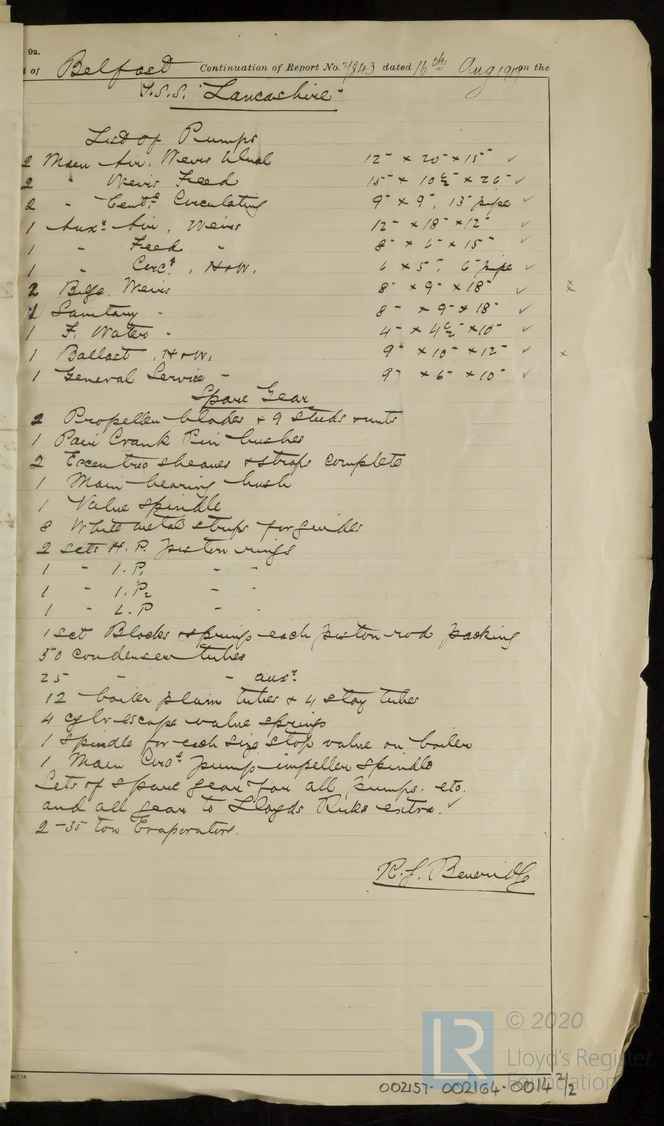 9a.
of Belfast Continuation of Report No. 7843 dated 16th Aug 1917 on the
T.S.S. "Lancashire"
List of Pumps
2 Main Air, Weirs Dual 12" x 20" x 15" ✓
2 " Weirs Feed 15" x 10½" x 26" ✓
2 " Centl. Circulating 9" x 9", 13" pipe ✓
1 Auxy. Air, Weirs 12" x 18" x 12" ✓
1 " Feed " 8" x 6" x 15" ✓
1 " Circt., H&W. 6 x 5", 6" pipe ✓
2 Bilge Weirs 8" x 9" x 18" ✓ x
1 Sanitary " 8" x 9" x 18" ✓
1 F. Water " 4" x 4½" x 10" ✓
1 Ballast, H&W. 9" x 10" x 12" ✓ x
1 General Service " 9" x 6" x 10" ✓
Spare Gear
2 Propeller blades & 9 studs & nuts
1 Pair Crank Pin bushes
2 Excentric sheaves & straps complete
1 Main bearing bush
1 Valve spindle
8 White metal strips for guides
2 sets H.P. piston rings
1 " I.P. " "
1 " L.P₂ " "
1 " L.P " "
1 set Blocks & springs each piston rod packing
50 condenser tubes
25 " " auxy.
12 boiler plain tubes & 4 stay tubes
4 cylr escape valve springs
1 spindle for each size stop valve on boiler
1 Main Circt. pump impeller spindle
Sets of spare gear for all pumps. etc.
and all gear to Lloyds Rules extra. ✓
2 - 35 ton Evaporators.
R. J. Beveridge
© 2020
LR
Lloyd's Register
Foundation
002157-002164-0014 2/2